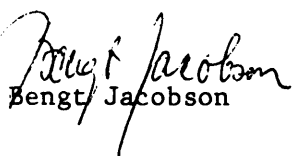 Bengt Jacobson
Bengt Jacobson